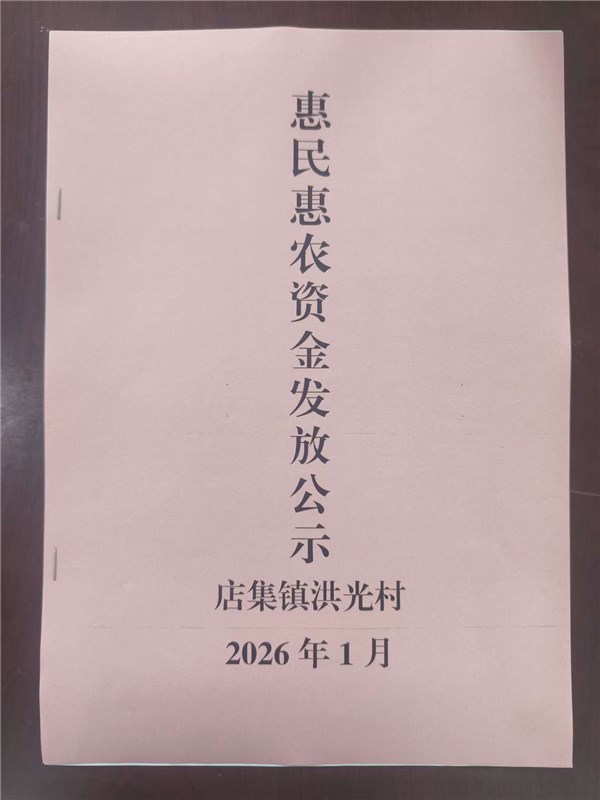 惠民惠农资金发放公示
店集镇洪光村
2026年1月